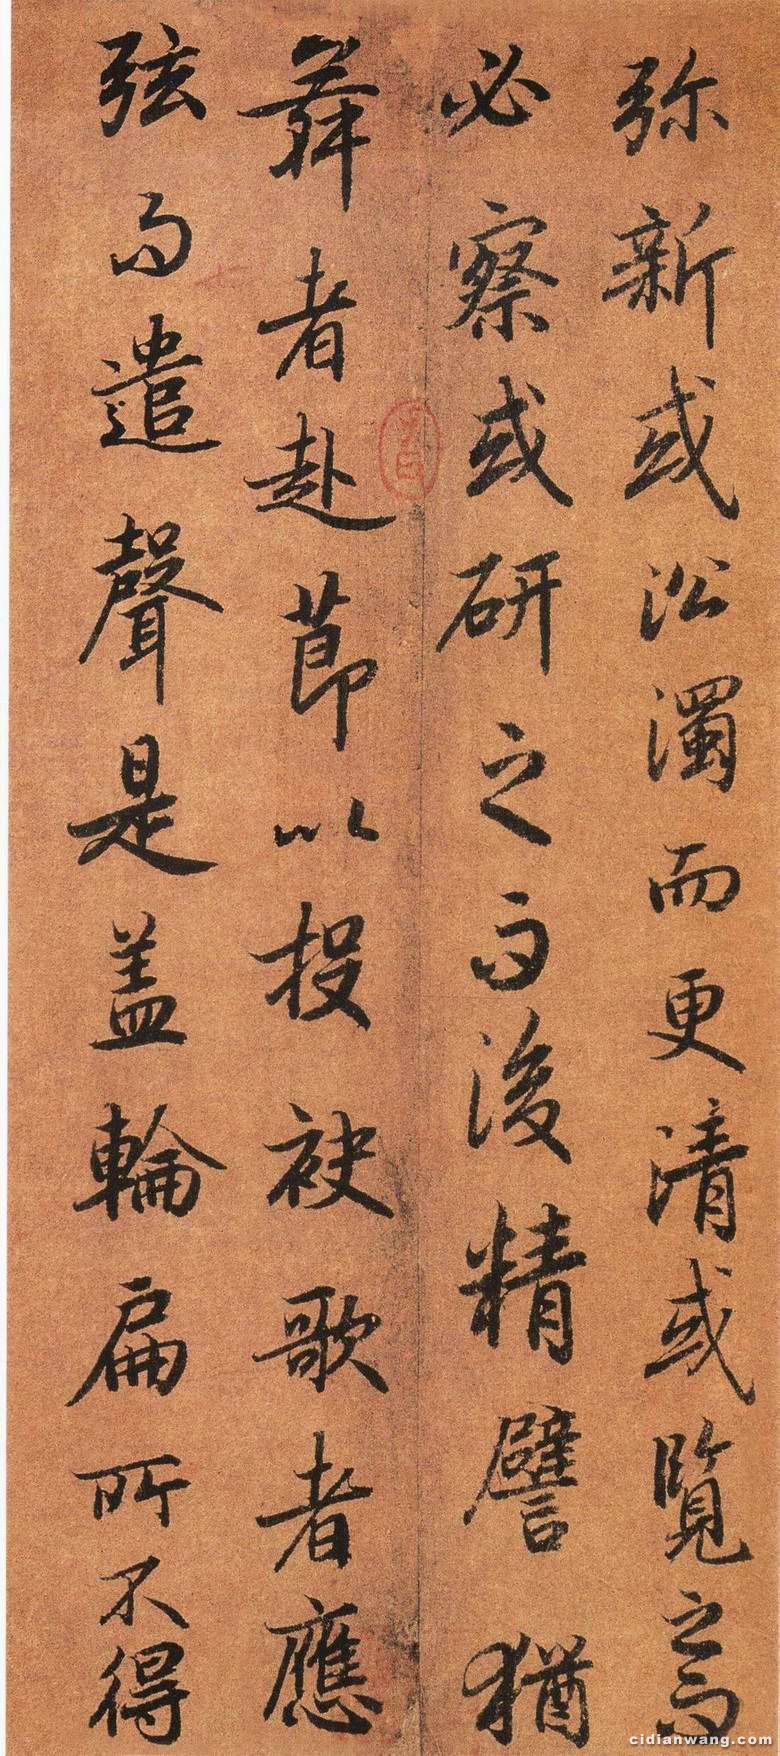 弥新或沿濁而更清或覽之而
必察或研之而後精譬猶
舞者赴莭以投袂歌者應
弦而遣聲是盖輪扁所不得
cidianwang.com